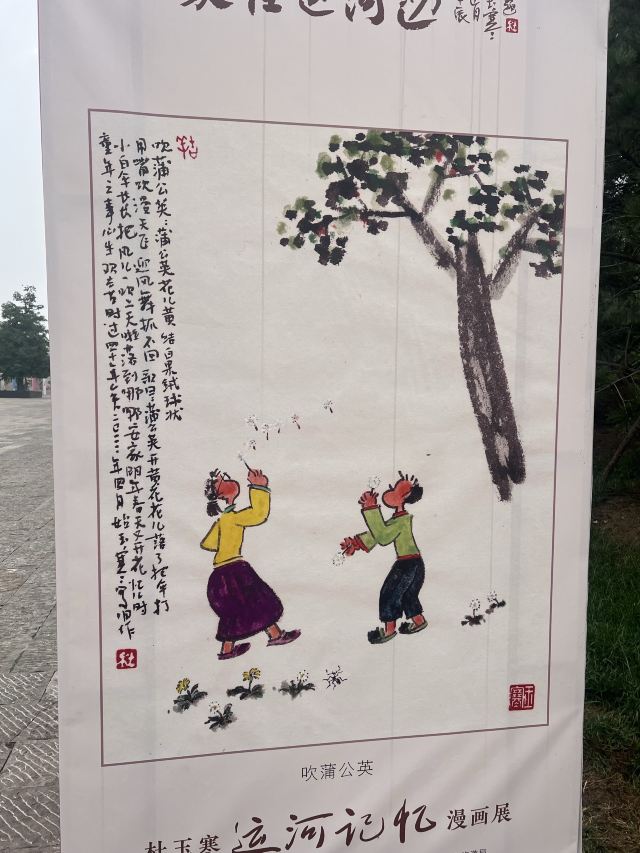 家住运河边
吹蒲公英：蒲公英花儿黄结白果绒球状
用嘴吹漫天飞迎风舞抓不回歌曰：蒲公英开黄花花儿落了把伞打
小白伞长长把风儿一吹上天啦落到哪哪安家明年春天又开花忆儿时
童年之事心生 时过四十年 年四月 玉寒 作
杜
玉寒
吹蒲公英
杜玉寒 运河记忆 漫画展